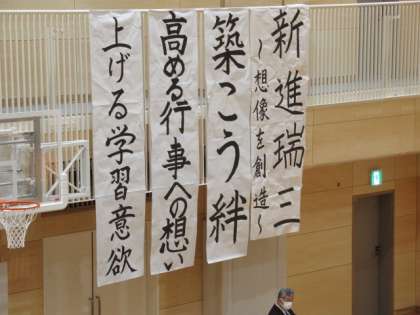 新進瑞三
～想像を創造～
築こう絆
高める行事への想い
上げる学習意欲